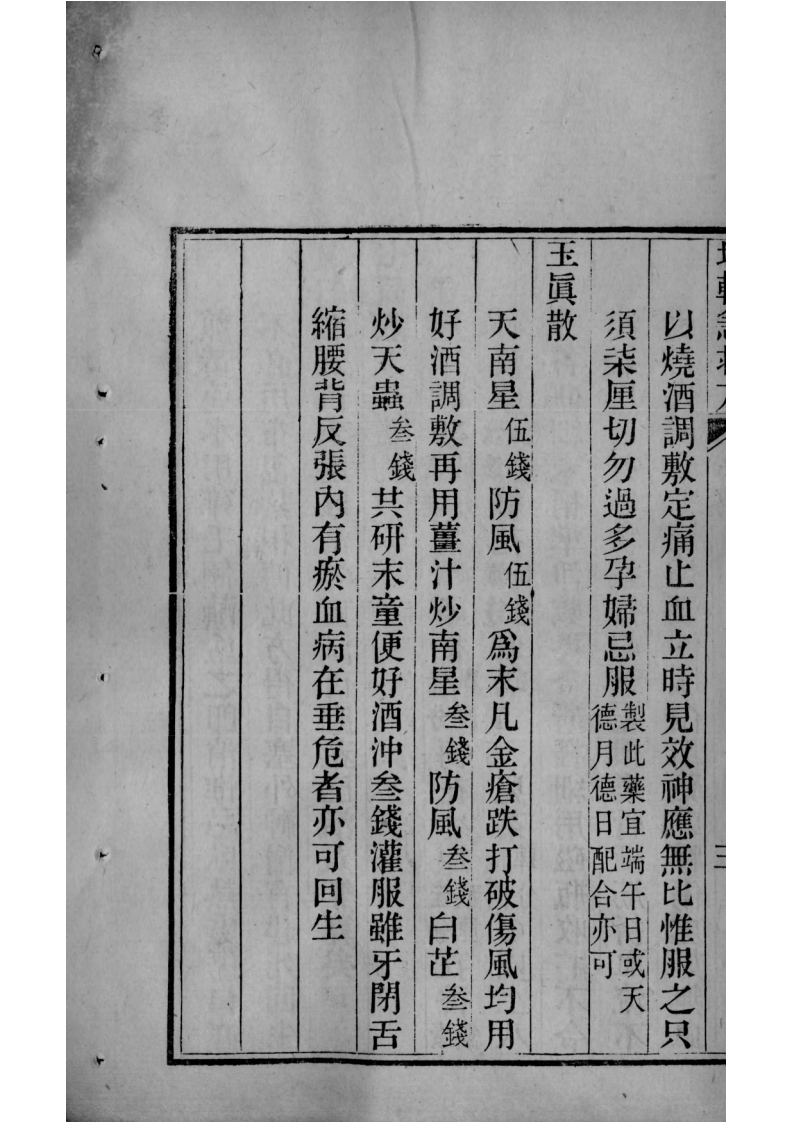 以燒酒調敷定痛止血立時見效神應無比惟服之只
須柒厘切勿過多孕婦忌服製此藥宜端午日或天德月德日配合亦可
玉眞散
天南星伍錢防風伍錢爲末凡金瘡跌打破傷風均用
好酒調敷再用薑汁炒南星叁錢防風叁錢白芷叁錢
炒天蟲叁錢共研末童便好酒沖叁錢灌服雖牙閉舌
縮腰背反張內有瘀血病在垂危者亦可回生